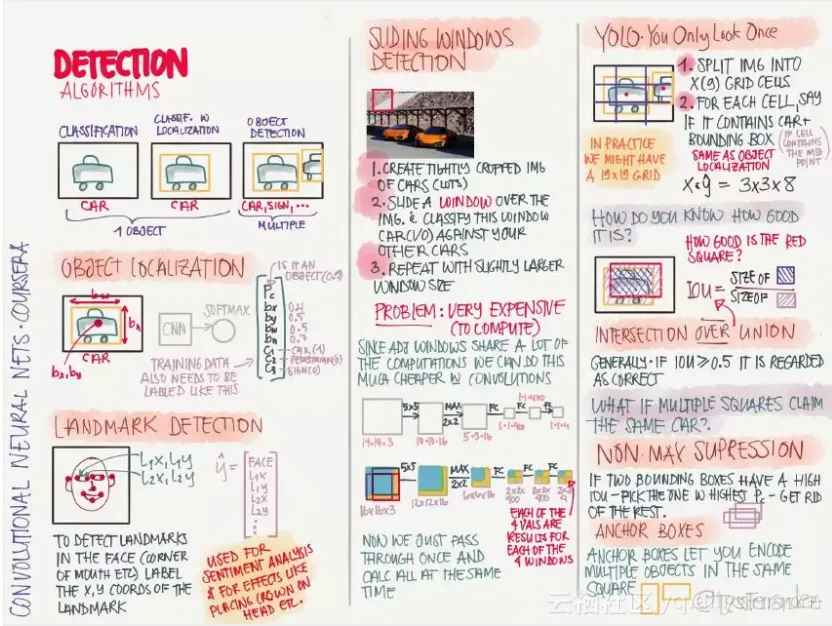 CONVOLUTIONAL NEURAL NETS · COURSERA
DETECTION
ALGORITHMS
CLASSIFICATION
CLASSIF. W
LOCALIZATION
OBJECT
DETECTION
CAR
CAR
CAR, SIGN, ...
1 OBJECT
MULTIPLE
OBJECT LOCALIZATION
IS IT AN
OBJECT (0,1)
bw
bh
CAR
bx,by
CNN
SOFTMAX
Pc
bx
by 0.5
bw 0.5
bh
C1 - CAR (1)
C2 - PEDESTRIAN (0)
C3 - SIGN (0)
TRAINING DATA
ALSO NEEDS TO BE
LABLED LIKE THIS
LANDMARK DETECTION
l1x, l1y
l2x, l2y
ŷ =
FACE
l1x
l1y
l2x
l2y
TO DETECT LANDMARKS
IN THE FACE (CORNER
OF MOUTH ETC) LABEL
THE X,Y COORDS OF THE
LANDMARK
USED FOR
SENTIMENT ANALYSIS
& FOR EFFECTS LIKE
PLACING CROWN ON
HEAD ETC.
SLIDING WINDOWS
DETECTION
1. CREATE TIGHTLY CROPPED IMG
OF CARS
2. SLIDE A WINDOW OVER THE
IMG. & CLASSIFY THIS WINDOW
CAR (1/0) AGAINST YOUR
OTHER CARS
3. REPEAT WITH SLIGHTLY LARGER
WINDOW SIZE
PROBLEM: VERY EXPENSIVE
(TO COMPUTE)
SINCE ADJ WINDOWS SHARE A LOT OF
THE COMPUTATIONS WE CAN DO THIS
MUCH CHEAPER W CONVOLUTIONS
5x5
MAX
2x2
FC
FC
14·14·3
10·10·16
5·5·16
1·1·400
1·1·400
1·1·4
5x5
MAX
2x2
FC
FC
FC
16x16x3
12x12x16
6x6x16
2x2x
400
2x2x
400
2x2x
4
EACH OF
THE 4 VALS ARE
RESULTS FOR
EACH OF THE
4 WINDOWS
NOW WE JUST PASS
THROUGH ONCE AND
CALC ALL AT THE SAME
TIME
YOLO · You Only Look Once
1. SPLIT IMG INTO
X(9) GRID CELLS
2. FOR EACH CELL, SAY
IF IT CONTAINS CAR +
BOUNDING BOX
(IF CELL
CONTAINS
THE MID
POINT)
SAME AS OBJECT
LOCALIZATION
IN PRACTICE
WE MIGHT HAVE
A 19x19 GRID
ŷ = 3x3x8
HOW DO YOU KNOW HOW GOOD
IT IS?
HOW GOOD IS THE RED
SQUARE?
IOU =
SIZE OF
SIZE OF
INTERSECTION OVER UNION
GENERALLY · IF IOU ≥ 0.5 IT IS REGARDED
AS CORRECT
WHAT IF MULTIPLE SQUARES CLAIM
THE SAME CAR?
NON·MAX SUPRESSION
IF TWO BOUNDING BOXES HAVE A HIGH
IOU - PICK THE ONE W HIGHEST Pc - GET RID
OF THE REST.
ANCHOR BOXES
ANCHOR BOXES LET YOU ENCODE
MULTIPLE OBJECTS IN THE SAME
SQUARE
@TessFerrandez
云栖社区